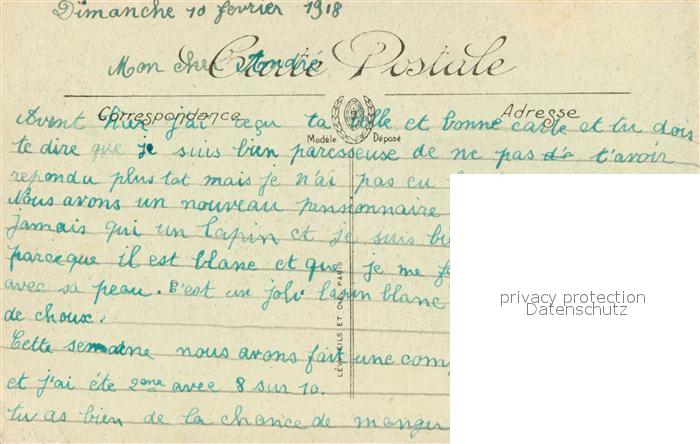 Dimanche 10 fevrier 1918
Mon cher André
Carte Postale
Correspondance
Adresse
Modèle Déposé
Avent hier j'ai reçu ta belle et bonne carte et tu dois
te dire que je suis bien paresseuse de ne pas t'avoir
repondu plus tot mais je n'ai pas eu
Nous avons un nouveau pensionnaire
Jamais qui un lapin et je suis
parceque il est blanc et que je me
avec sa peau. C'est un joli lapin blanc
de choux.
Cette semaine nous avons fait une
et j'ai éte 2eme avec 8 sur 10.
tu as bien de la chance de manger
LÉVY FILS ET CIE PARIS
privacy protection
Datenschutz